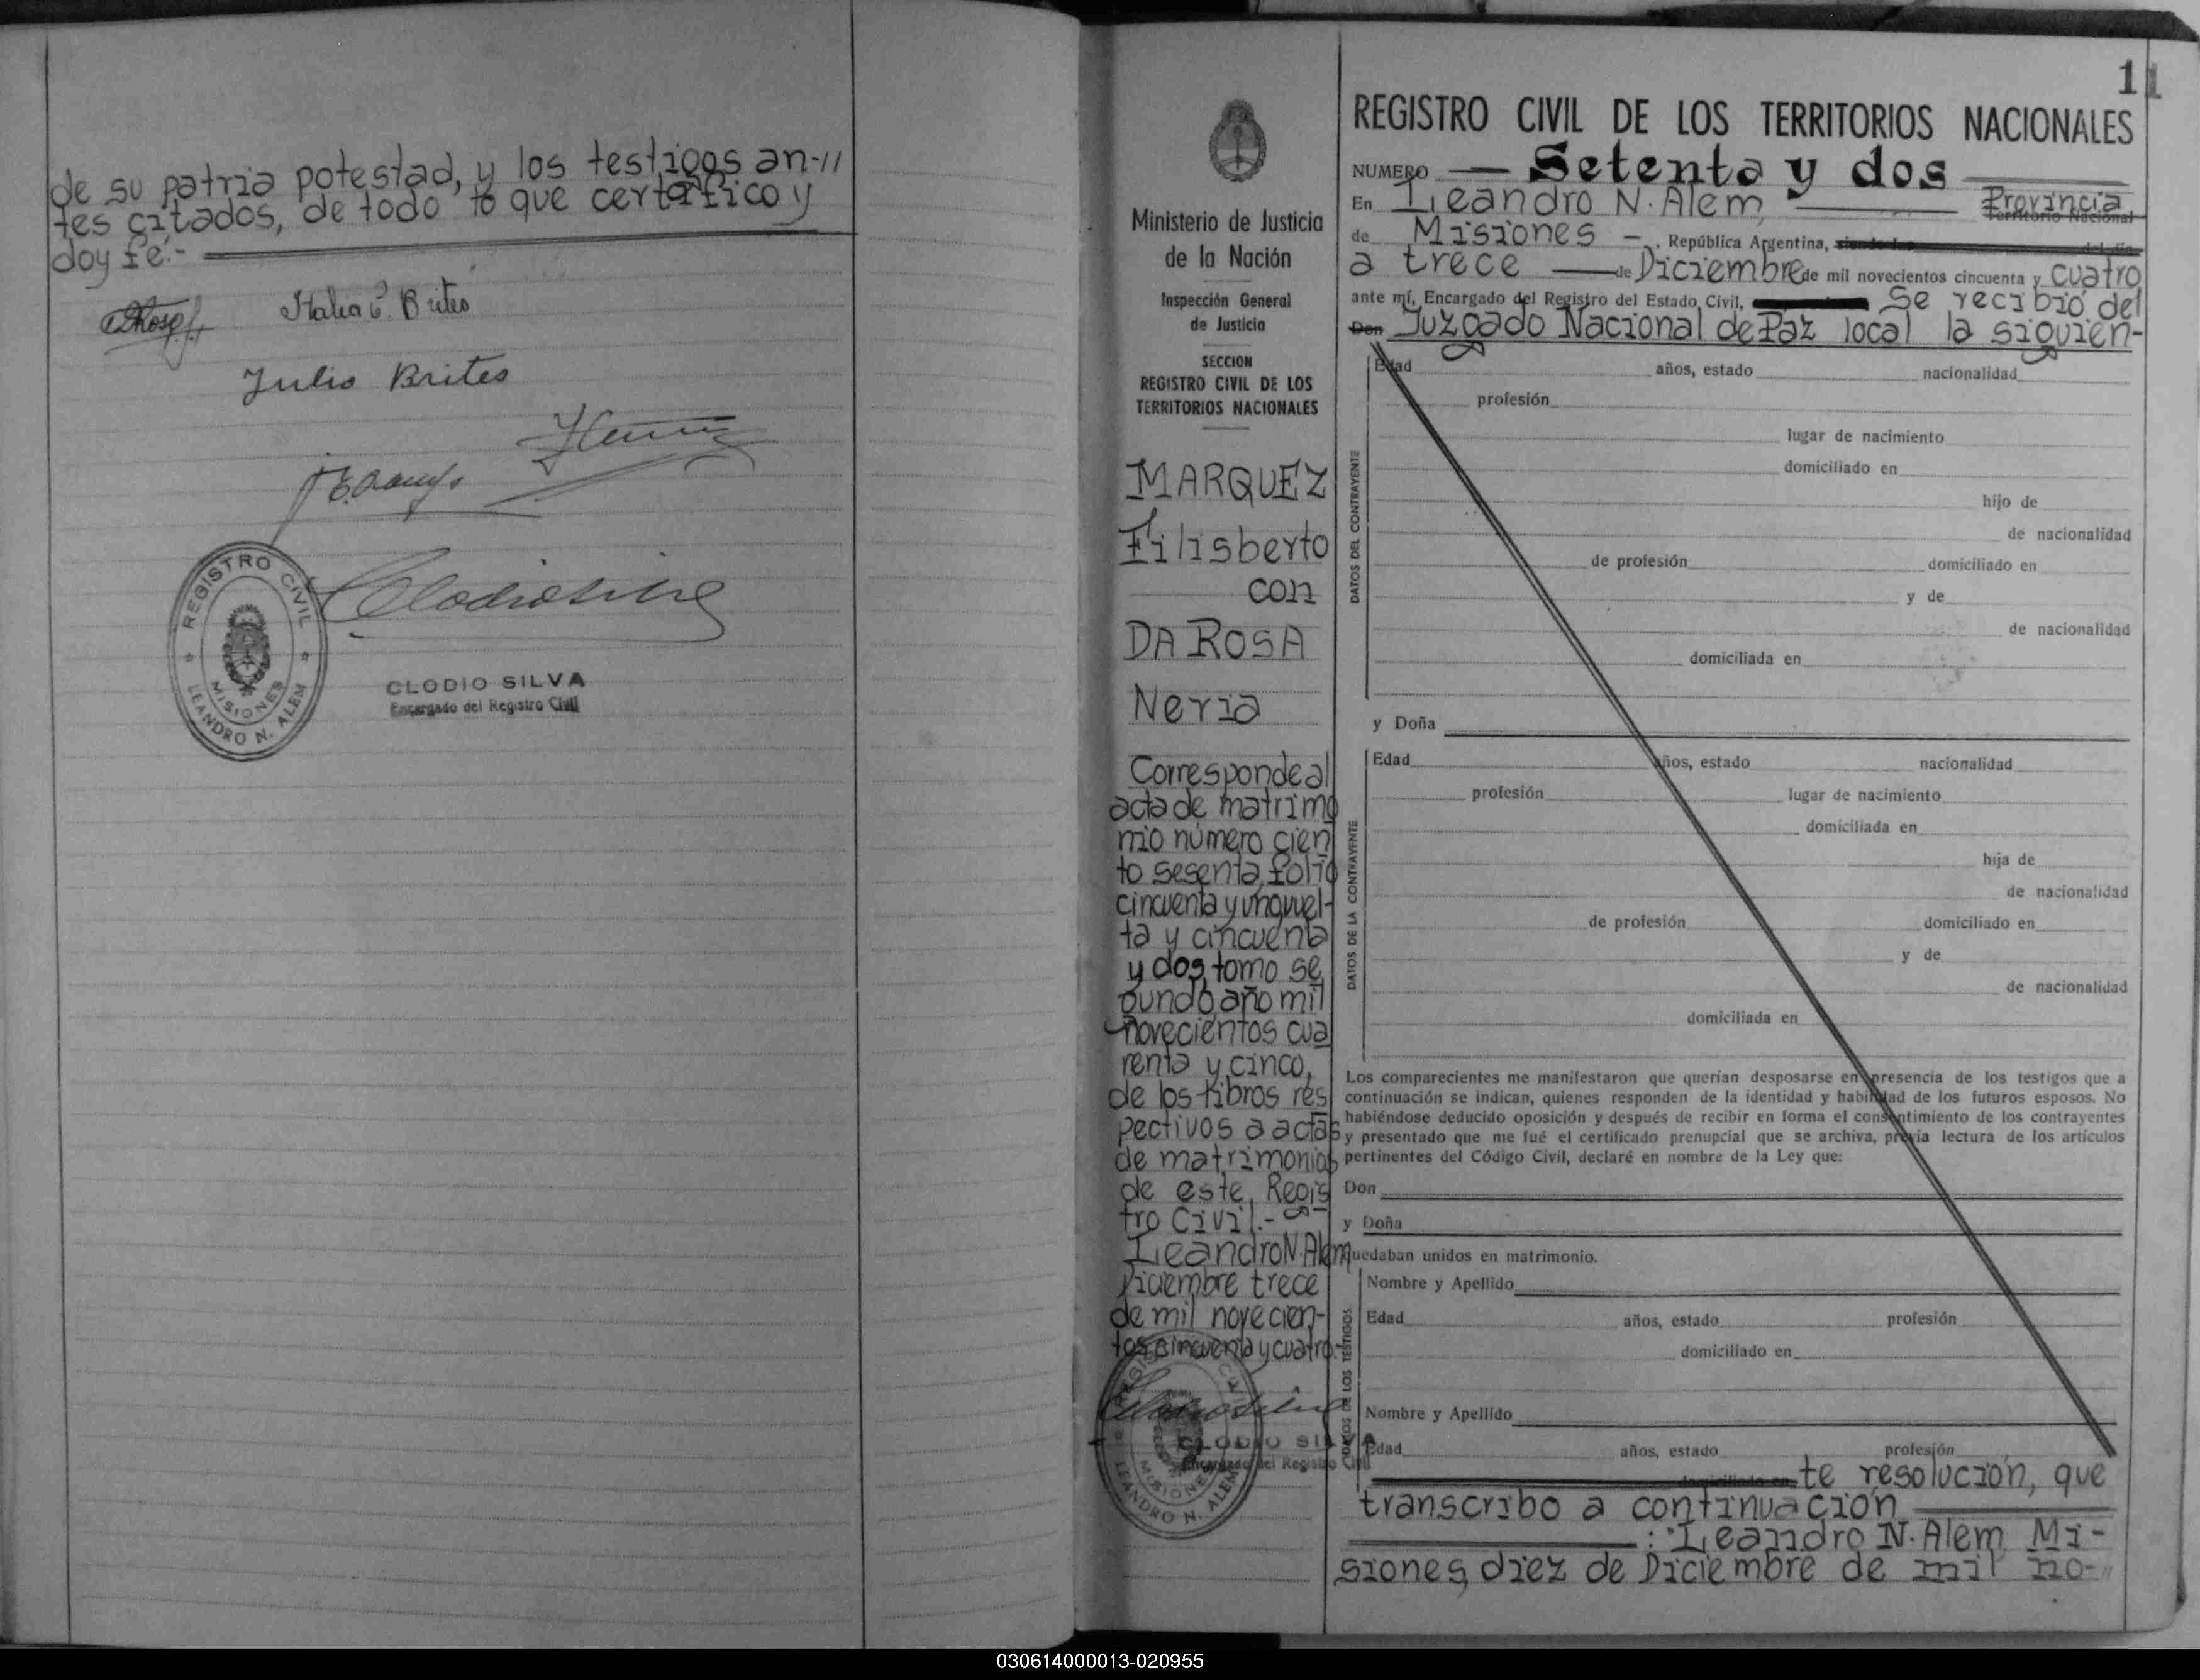 de su patria potestad, y los testigos an-//
tes citados, de todo lo que certifico y
doy fé.-
Italia C. Brites
Julio Brites
REGISTRO CIVIL
MISIONES
LEANDRO N. ALEM
CLODIO SILVA
Encargado del Registro Civil
11
Ministerio de Justicia
de la Nación
Inspección General
de Justicia
SECCION
REGISTRO CIVIL DE LOS
TERRITORIOS NACIONALES
MARQUEZ
Filisberto
con
DA ROSA
Neria
Corresponde al
acta de matrimo
nio número cien
to sesenta, folio
cincuenta y uno, vuel-
ta y cincuenta
y dos, tomo se
gundo, año mil
novecientos cua
renta y cinco,
de los libros res
pectivos a actas
de matrimonios
de este, Regis
tro Civil.-
Leandro N. Alem
Diciembre trece
de mil novecien-
tos cincuenta y cuatro.-
CLODIO SILVA
Encargado del Registro Civil
MISIONES
LEANDRO N. ALEM
REGISTRO CIVIL DE LOS TERRITORIOS NACIONALES
NUMERO Setenta y dos
En Leandro N. Alem Provincia
Territorio Nacional
de Misiones -, República Argentina,
a trece de Diciembre de mil novecientos cincuenta y cuatro
ante mí, Encargado del Registro del Estado Civil, Se recibió del
Don Juzgado Nacional de Paz local la siguien-
DATOS DEL CONTRAYENTE
Edad años, estado nacionalidad
profesión
lugar de nacimiento
domiciliado en
hijo de
de nacionalidad
de profesión domiciliado en
y de
de nacionalidad
domiciliada en
y Doña
DATOS DE LA CONTRAYENTE
Edad años, estado nacionalidad
profesión lugar de nacimiento
domiciliada en
hija de
de nacionalidad
de profesión domiciliado en
y de
de nacionalidad
domiciliada en
Los comparecientes me manifestaron que querían desposarse en presencia de los testigos que a
continuación se indican, quienes responden de la identidad y habilidad de los futuros esposos. No
habiéndose deducido oposición y después de recibir en forma el consentimiento de los contrayentes
y presentado que me fué el certificado prenupcial que se archiva, previa lectura de los artículos
pertinentes del Código Civil, declaré en nombre de la Ley que:
Don
y Doña
quedaban unidos en matrimonio.
DATOS DE LOS TESTIGOS
Nombre y Apellido
Edad años, estado profesión
domiciliado en
Nombre y Apellido
Edad años, estado profesión
domiciliado en te resolución, que
transcribo a continuación
: "Leandro N. Alem, Mi-
siones, diez de Diciembre de mil no-//
030614000013-020955